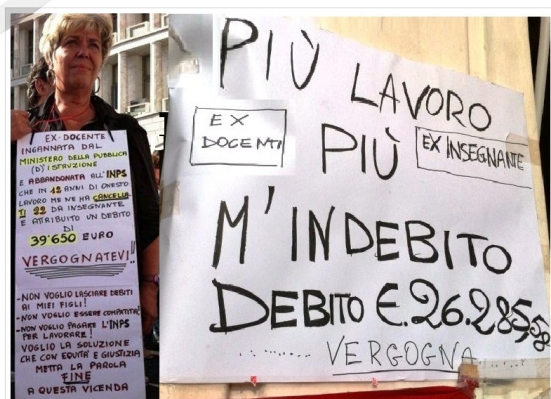 EX-DOCENTE
INGANNATA DAL
MINISTERO DELLA PUBBLICA
(D)ISTRUZIONE
E ABBANDONATA ALL'INPS
CHE IN 42 ANNI DI ONESTO
LAVORO ME NE HA CANCELLA
TI 22 DA INSEGNANTE
E ATTRIBUITO UN DEBITO
DI
39'650 EURO
VERGOGNATEVI!!
-NON VOGLIO LASCIARE DEBITI
AI MIEI FIGLI!
-NON VOGLIO ESSERE COMPATITA!
-NON VOGLIO PAGARE L'INPS
PER LAVORARE!
VOGLIO LA SOLUZIONE
CHE CON EQUITÀ E GIUSTIZIA
METTA LA PAROLA
FINE
A QUESTA VICENDA
PIÙ LAVORO
EX
DOCENTI
PIÙ
EX INSEGNANTE
M'INDEBITO
DEBITO €.26.285,58
VERGOGNA